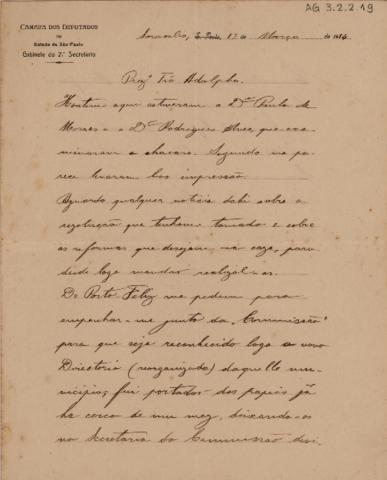 AG 3.2.2.19
CAMARA DOS DEPUTADOS
DO
Estado de São Paulo
Gabinete do 2º Secretario
Sorocaba, S. Paulo, 13 de Março de 1914
Prezº Tio Adolpho.
Hontem aqui estiveram o Dr. Paula de
Moraes e o Dr. Rodrigues Alves, que exa-
minaram a chacara. Segundo me pa-
rece levaram boa impressão.
Aguardo qualquer noticia dahi sobre a
resolução que tenham tomado e sobre
as reformas que desejam, na casa, para
desde logo mandar realizal-as.
De Porto Feliz me pedem para
empenhar-me junto da "Commissão"
para que seja reconhecido logo o novo
Directorio (reorganizado) daquelle mu-
nicipio; fui portador dos papeis já
ha cerca de um mez, deixando-os
na Secretaria da Commissão